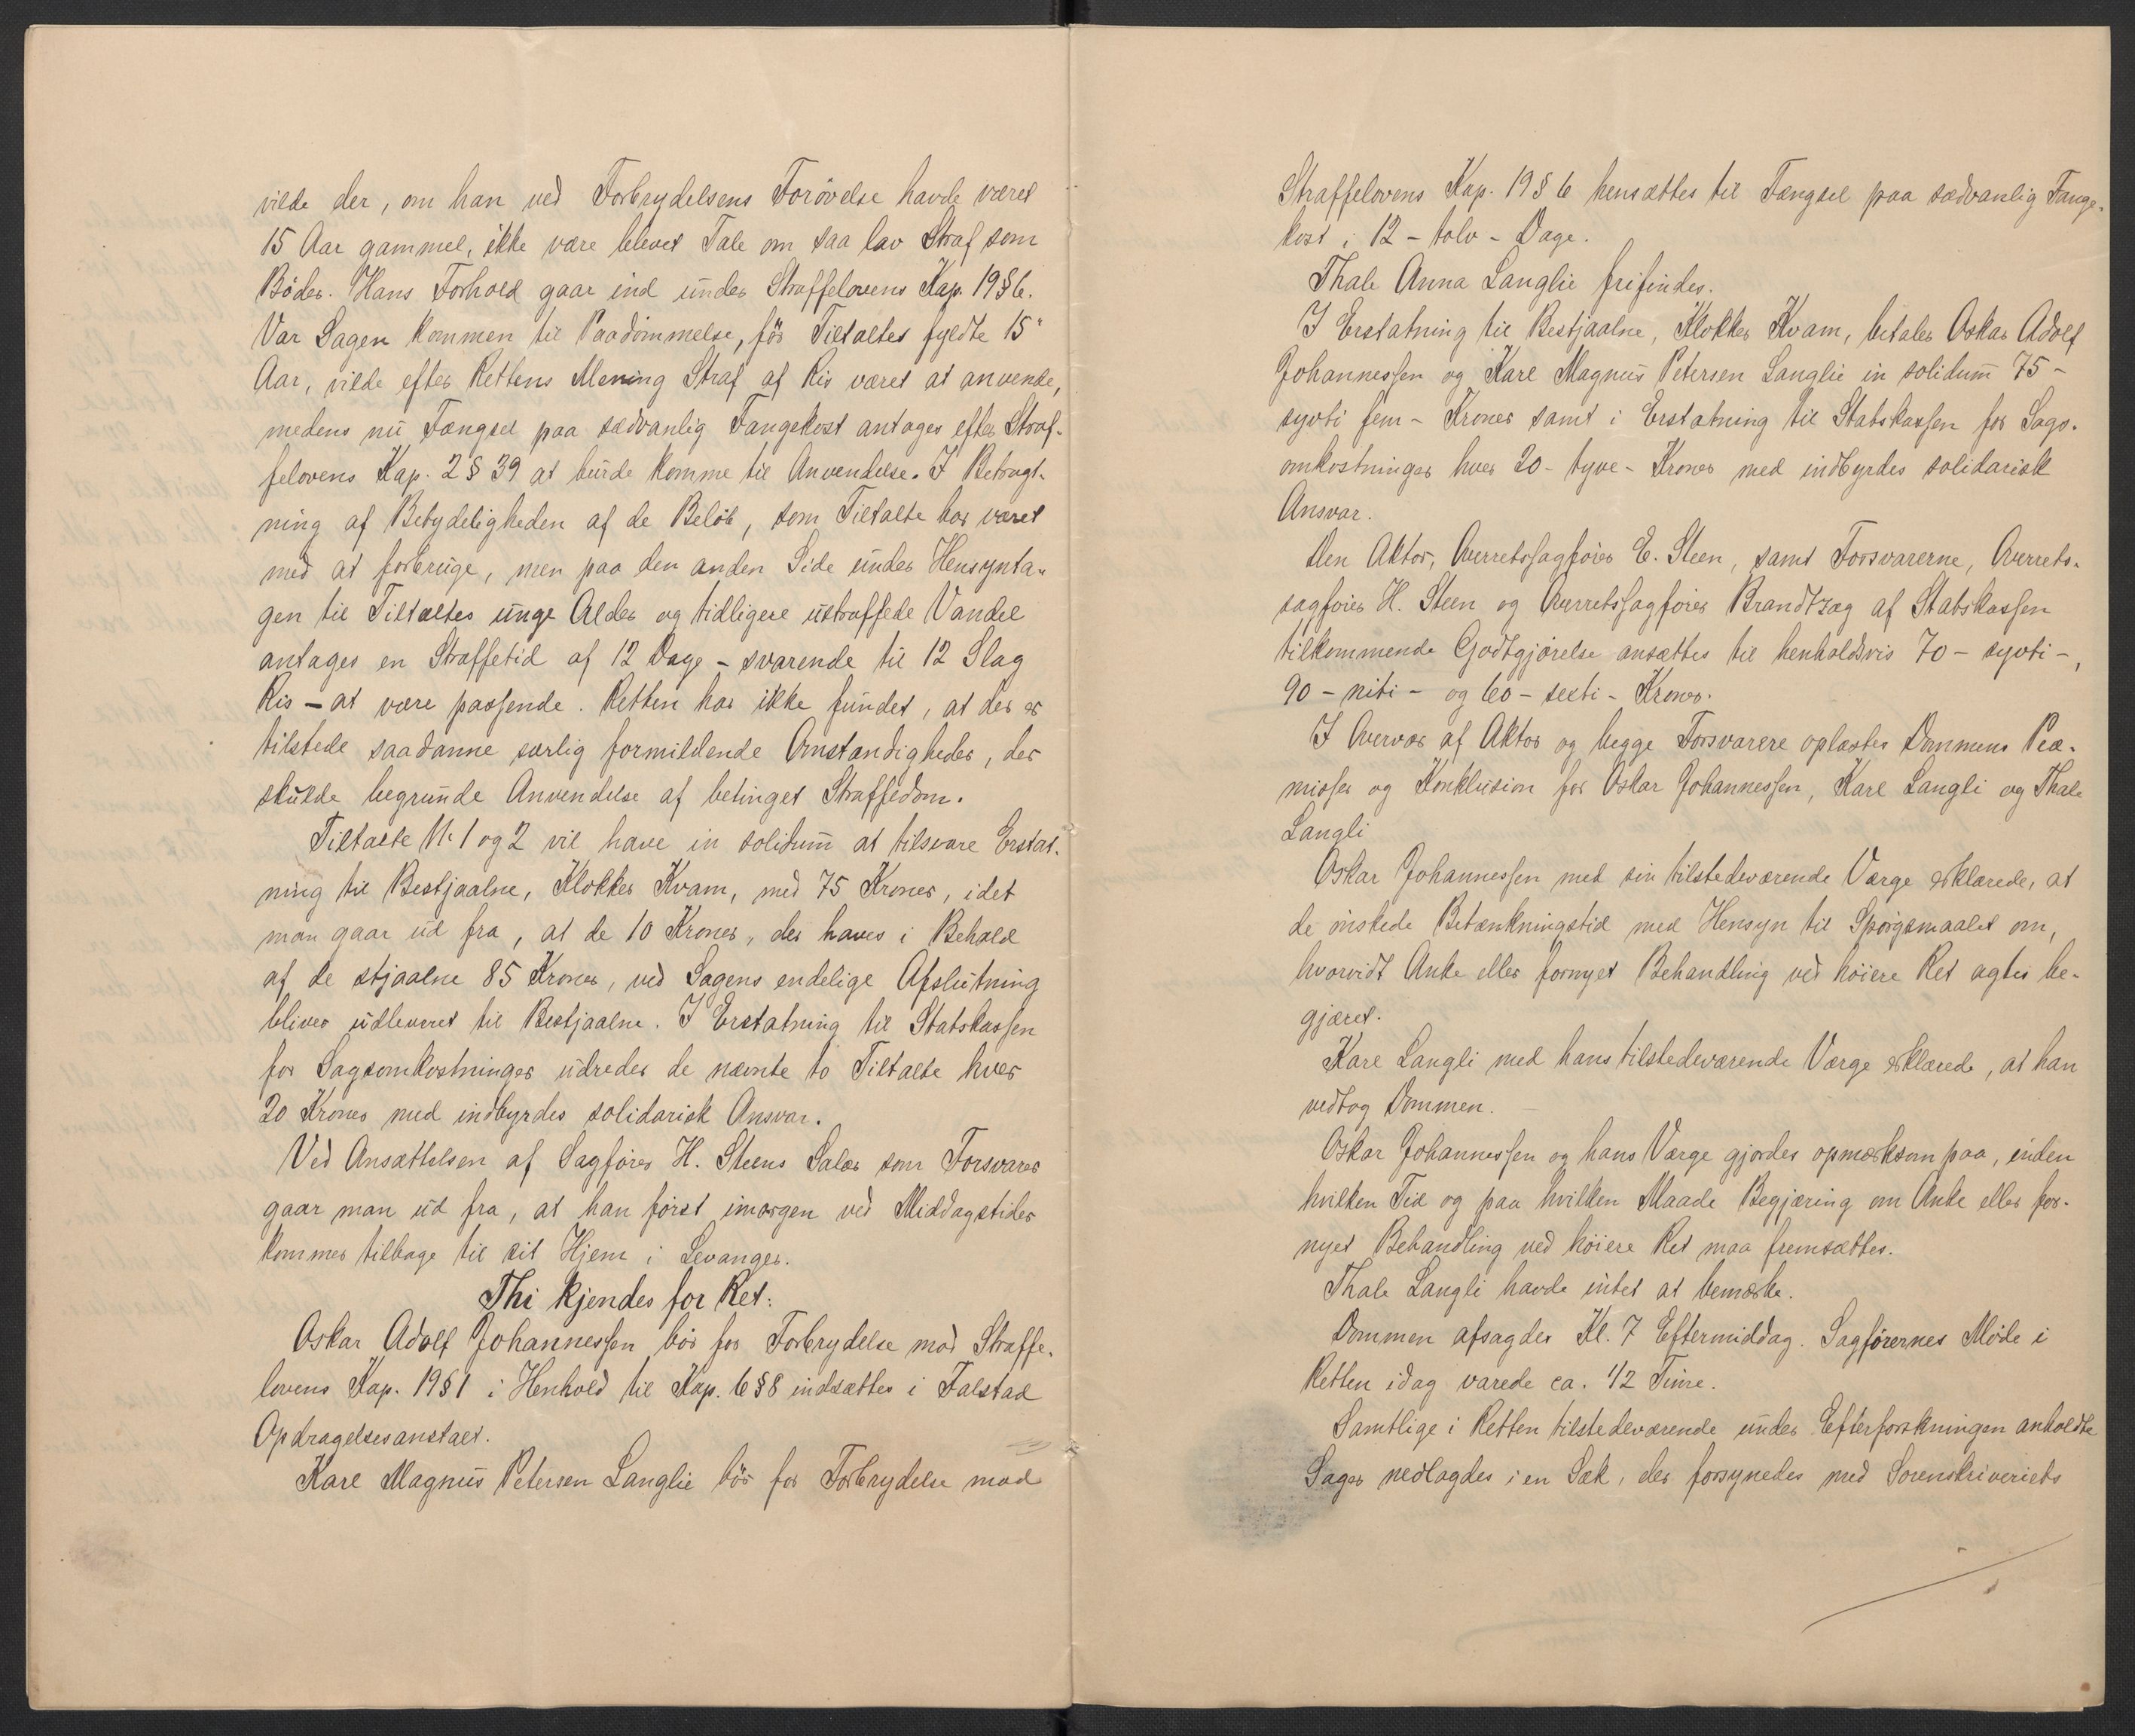 vilde der, om han ved Forbrydelsens Forøvelse havde været
15 Aar gammel, ikke være blevet Tale om saa lav Straf som
Bøder. Hans Forhold gaar ind under Straffelovens Kap. 19 § 6.
Var Sagen kommen til Paadømmelse, før Tiltaltes fyldte 15"
Aar, vilde efter Rettens Mening Straf af Ris været at anvende,
medens nu Fængsel paa sædvanlig Fangekost antages efter Straf-
felovens Kap. 2 § 39 at burde komme til Anvendelse. I Betragt-
ning af Betydeligheden af de Beløb, som Tiltalte har været
med at forbruge, men paa den anden Side under Hensynta-
gen til Tiltaltes unge Alder og tidligere ustraffede Vandel
antages en Straffetid af 12 Dage - svarende til 12 Slag
Ris - at være passende. Retten har ikke fundet, at der er
tilstede saadanne særlig formildende Omstændigheder, der
skulde begrunde Anvendelse af betinget Straffedom.
Tiltalte N. 1 og 2 vil have in solidum at tilsvare Erstat-
ning til Bestjaalne, Klokker Kvam, med 75 Kroner, idet
man gaar ud fra, at de 10 Kroner, der haves i Behold
af de stjaalne 85 Kroner, ved Sagens endelige Afslutning
bliver udleveret til Bestjaalne. I Erstatning til Statskassen
for Sagsomkostninger udreder de nævnte to Tiltalte hver
20 Kroner med indbyrdes solidarisk Ansvar.
Ved Ansættelsen af Sagfører H. Steens Salær som Forsvarer
gaar man ud fra, at han først imorgen ved Middagstider
kommer tilbage til sit Hjem i Levanger.
Thi kjendes for Ret:
Oskar Adolf Johannessen bør for Forbrydelse mod Straffe-
lovens Kap. 19 § 1 i Henhold til Kap. 6 § 8 indsættes i Falstad
Opdragelsesanstalt.
Kare Magnus Petersen Langlie bør for Forbrydelse mod
Straffelovens Kap. 19 § 6 hensættes til Fængsel paa sædvanlig Fange-
kost i 12 - tolv - Dage.
Thale Anna Langlie frifindes.
I Erstatning til Bestjaalne, Klokker Kvam, betaler Oskar Adolf
Johannessen og Kare Magnus Petersen Langlie in solidum 75 -
sytti fem - Kroner samt i Erstatning til Statskassen for Sags-
omkostninger hver 20 - tyve - Kroner med indbyrdes solidarisk
Ansvar.
Den Aktor, Overretssagfører E. Steen, samt Forsvarerne, Overrets-
sagfører H. Steen og Overretssagfører Brandtzæg af Statskassen
tilkommende Godtgjørelse ansættes til henholdsvis 70 - sytti -,
90 - nitti - og 60 - sexti - Kroner.
I Overvær af Aktor og begge Forsvarere oplæstes Dommens Præ-
misser og Konklusion for Oskar Johannessen, Kare Langli og Thale
Langli
Oskar Johannessen med sin tilstedeværende Værge erklærede, at
de ønskede Betænkningstid med Hensyn til Spørgsmaalet om,
hvorvidt Anke eller fornyet Behandling ved høiere Ret agtes be-
gjæret.
Kare Langli med hans tilstedeværende Værge erklærede, at han
vedtog Dommen.
Oskar Johannessen og hans Værge gjordes opmærksom paa, inden
hvilken Tid og paa hvilken Maade Begjæring om Anke eller for-
nyet Behandling ved høiere Ret maa fremsættes.
Thale Langli havde intet at bemærke.
Dommen afsagdes Kl. 7 Eftermiddag. Sagførernes Møde i
Retten idag varede ca. 1/2 Time.
Samtlige i Retten tilstedeværende under Efterforskningen anholdte
Sager nedlagdes i en Sæk, der forsynedes med Sorenskriveriets